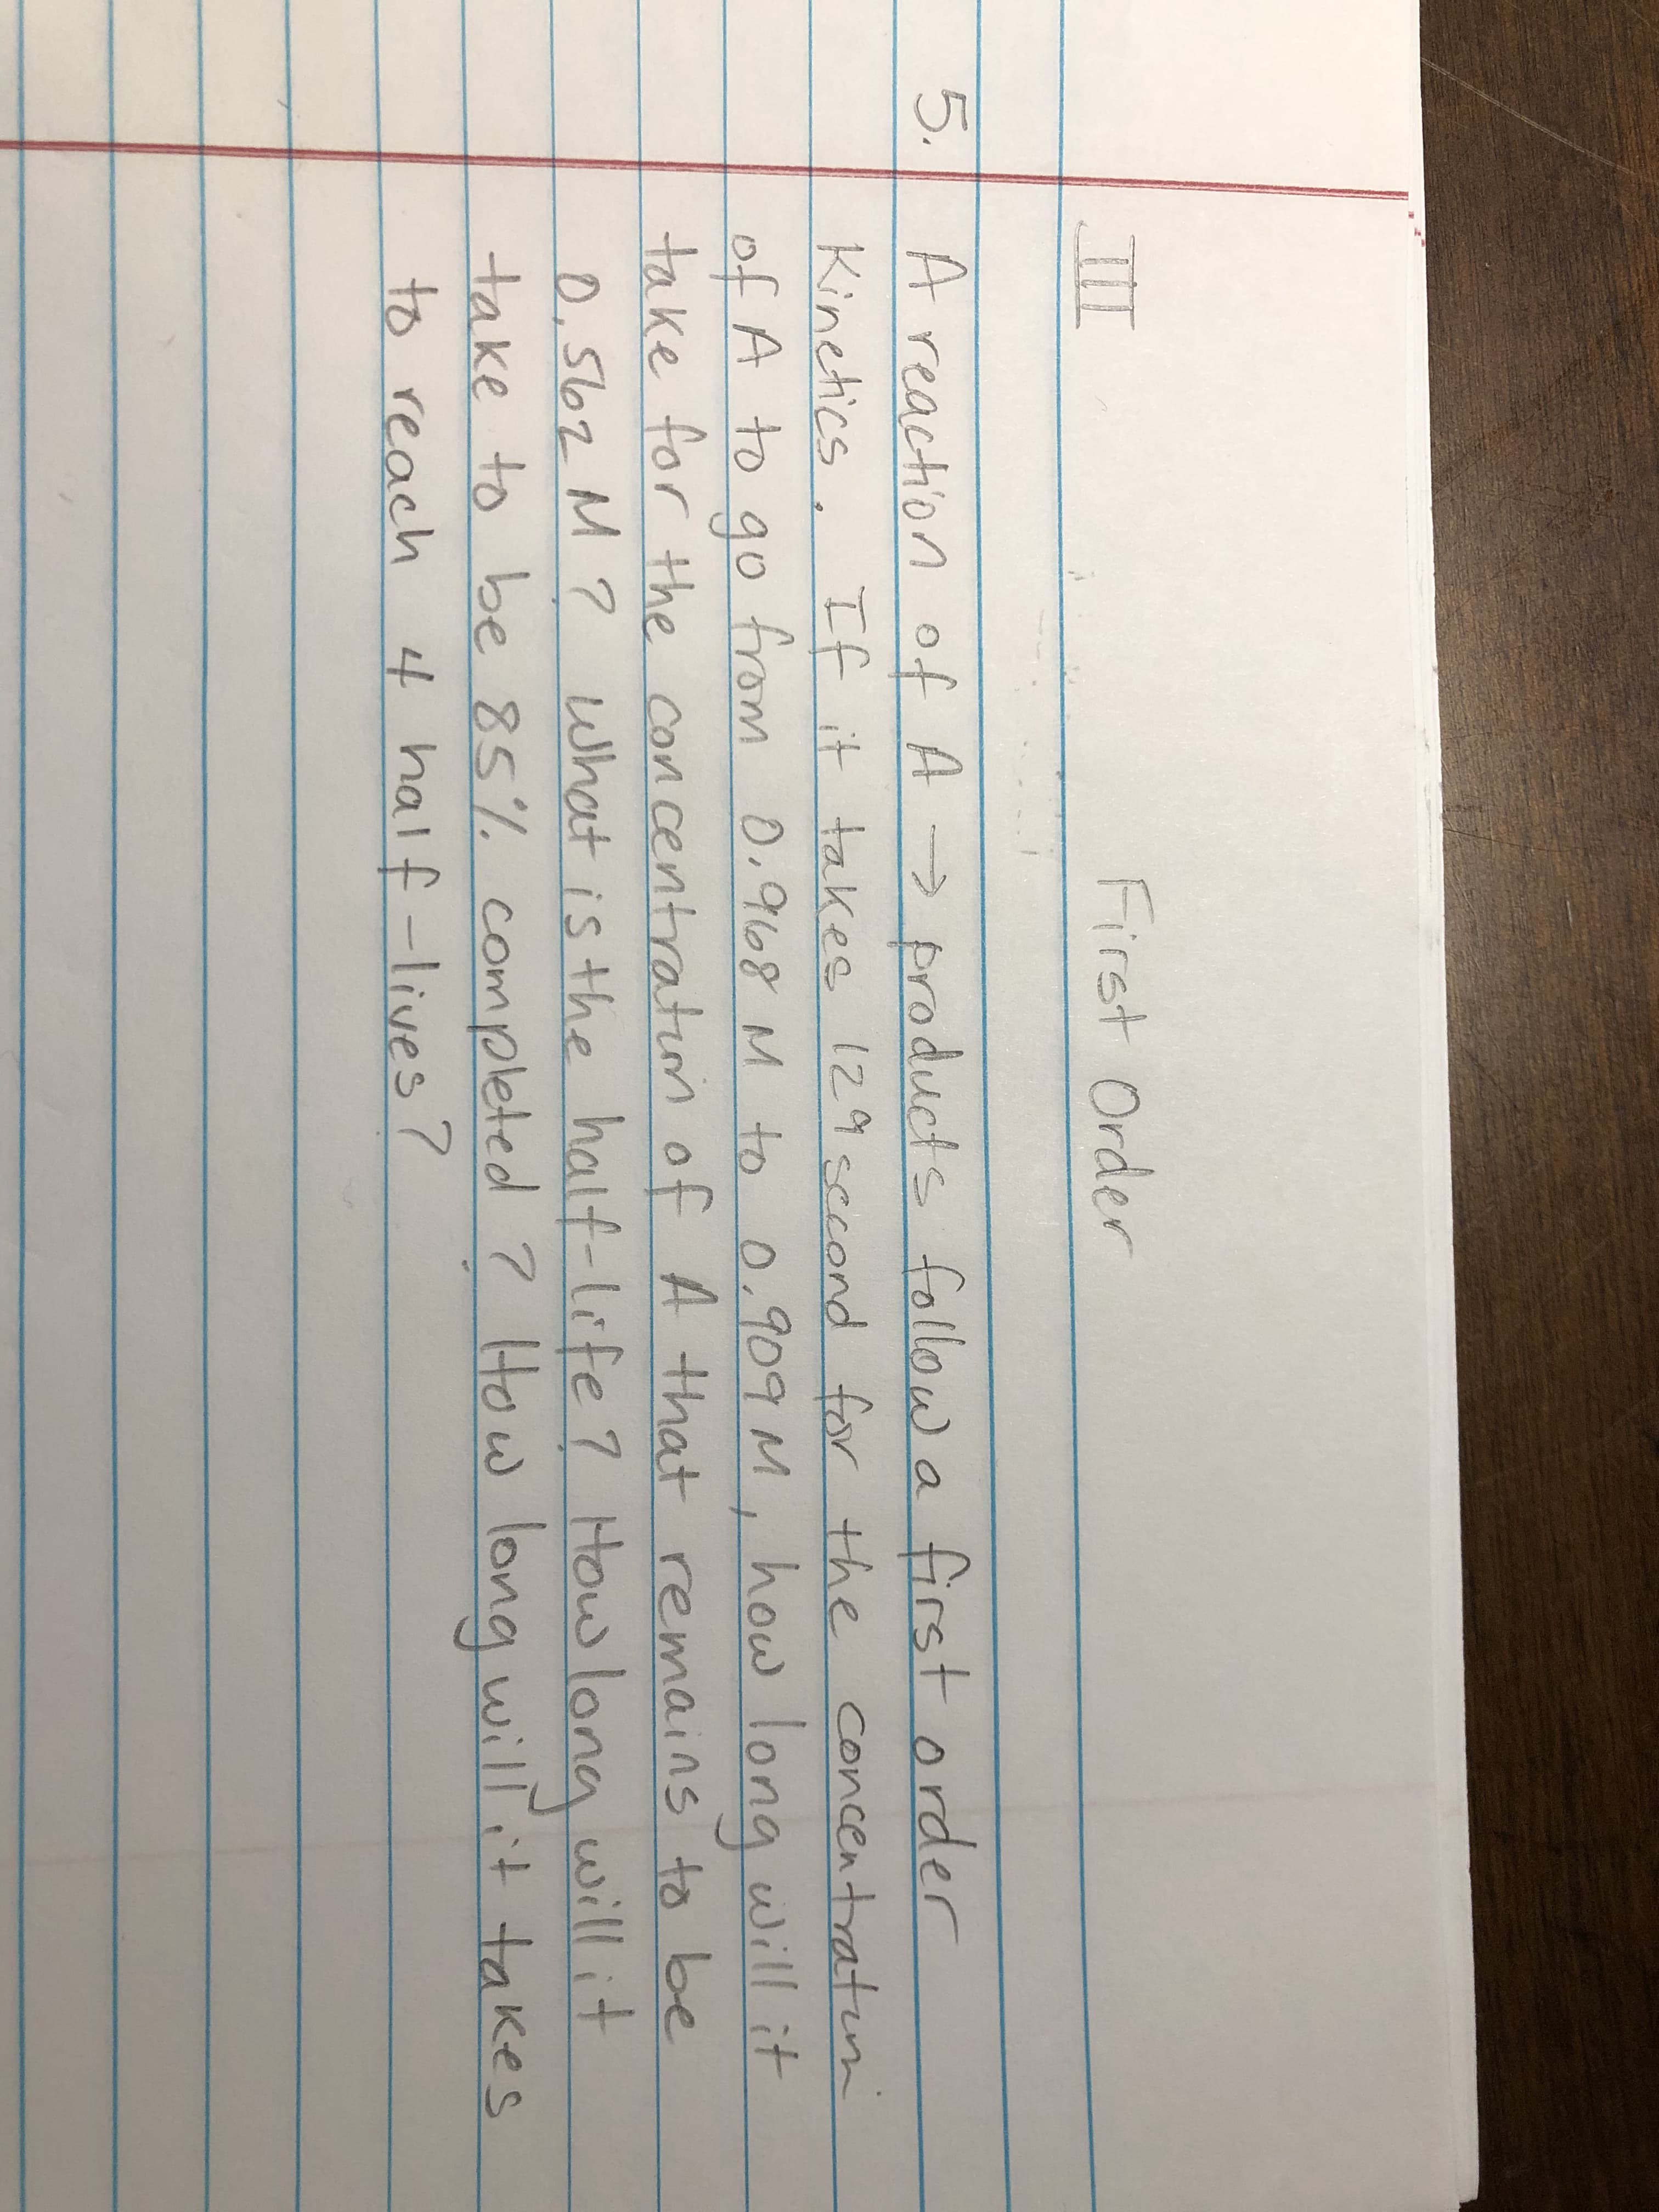 III First Order
5. A reaction of A → products follow a first order
Kinetics. If it takes 129 second for the concentration
of A to go from 0.968 M to 0.909 M, how long will it
take for the concentration of A that remains to be
0.562 M? What is the half-life? How long will it
take to be 85% completed? How long will it takes
to reach 4 half-lives?